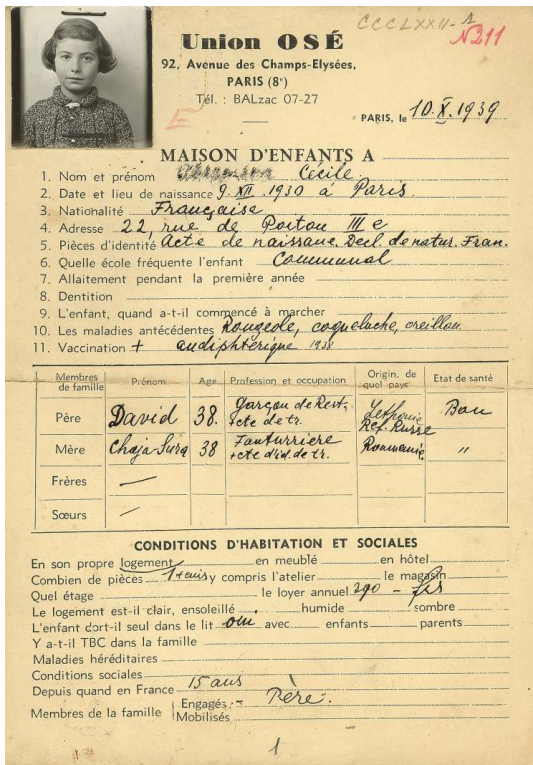 CCCLXXII-1
Union OSÉ
N211
92, Avenue des Champs-Elysées,
PARIS (8e)
Tél. : BALzac 07-27
E
PARIS, le 10.X.1939
MAISON D'ENFANTS A
1. Nom et prénom Cécile.
2. Date et lieu de naissance 9. XII. 1930 à Paris.
3. Nationalité Française
4. Adresse 22, rue de Poitou III e
5. Pièces d'identité Acte de naissance. Decl. de natur. Fran.
6. Quelle école fréquente l'enfant Communal
7. Allaitement pendant la première année
8. Dentition
9. L'enfant, quand a-t-il commencé à marcher
10. Les maladies antécédentes Rougeole, coqueluche, oreillon
11. Vaccination + andiphtérique 1938
Membres de famille Prénom Age Profession et occupation Origin. de quel pays Etat de santé
Père David 38. garçon de Rest. + cte de tr. Ref. Russe Bon
Mère Chaja Sura 38 + cte d'id. de tr. Roumanie "
Frères —
Sœurs —
CONDITIONS D'HABITATION ET SOCIALES
En son propre logement en meublé en hôtel
Combien de pièces 1 + cuis y compris l'atelier le magasin
Quel étage le loyer annuel 390 - frs
Le logement est-il clair, ensoleillé humide sombre
L'enfant dort-il seul dans le lit oui avec enfants parents
Y a-t-il TBC dans la famille
Maladies héréditaires
Conditions sociales
Depuis quand en France 15 ans
Membres de la famille Engagés - Père.
Mobilisés
1